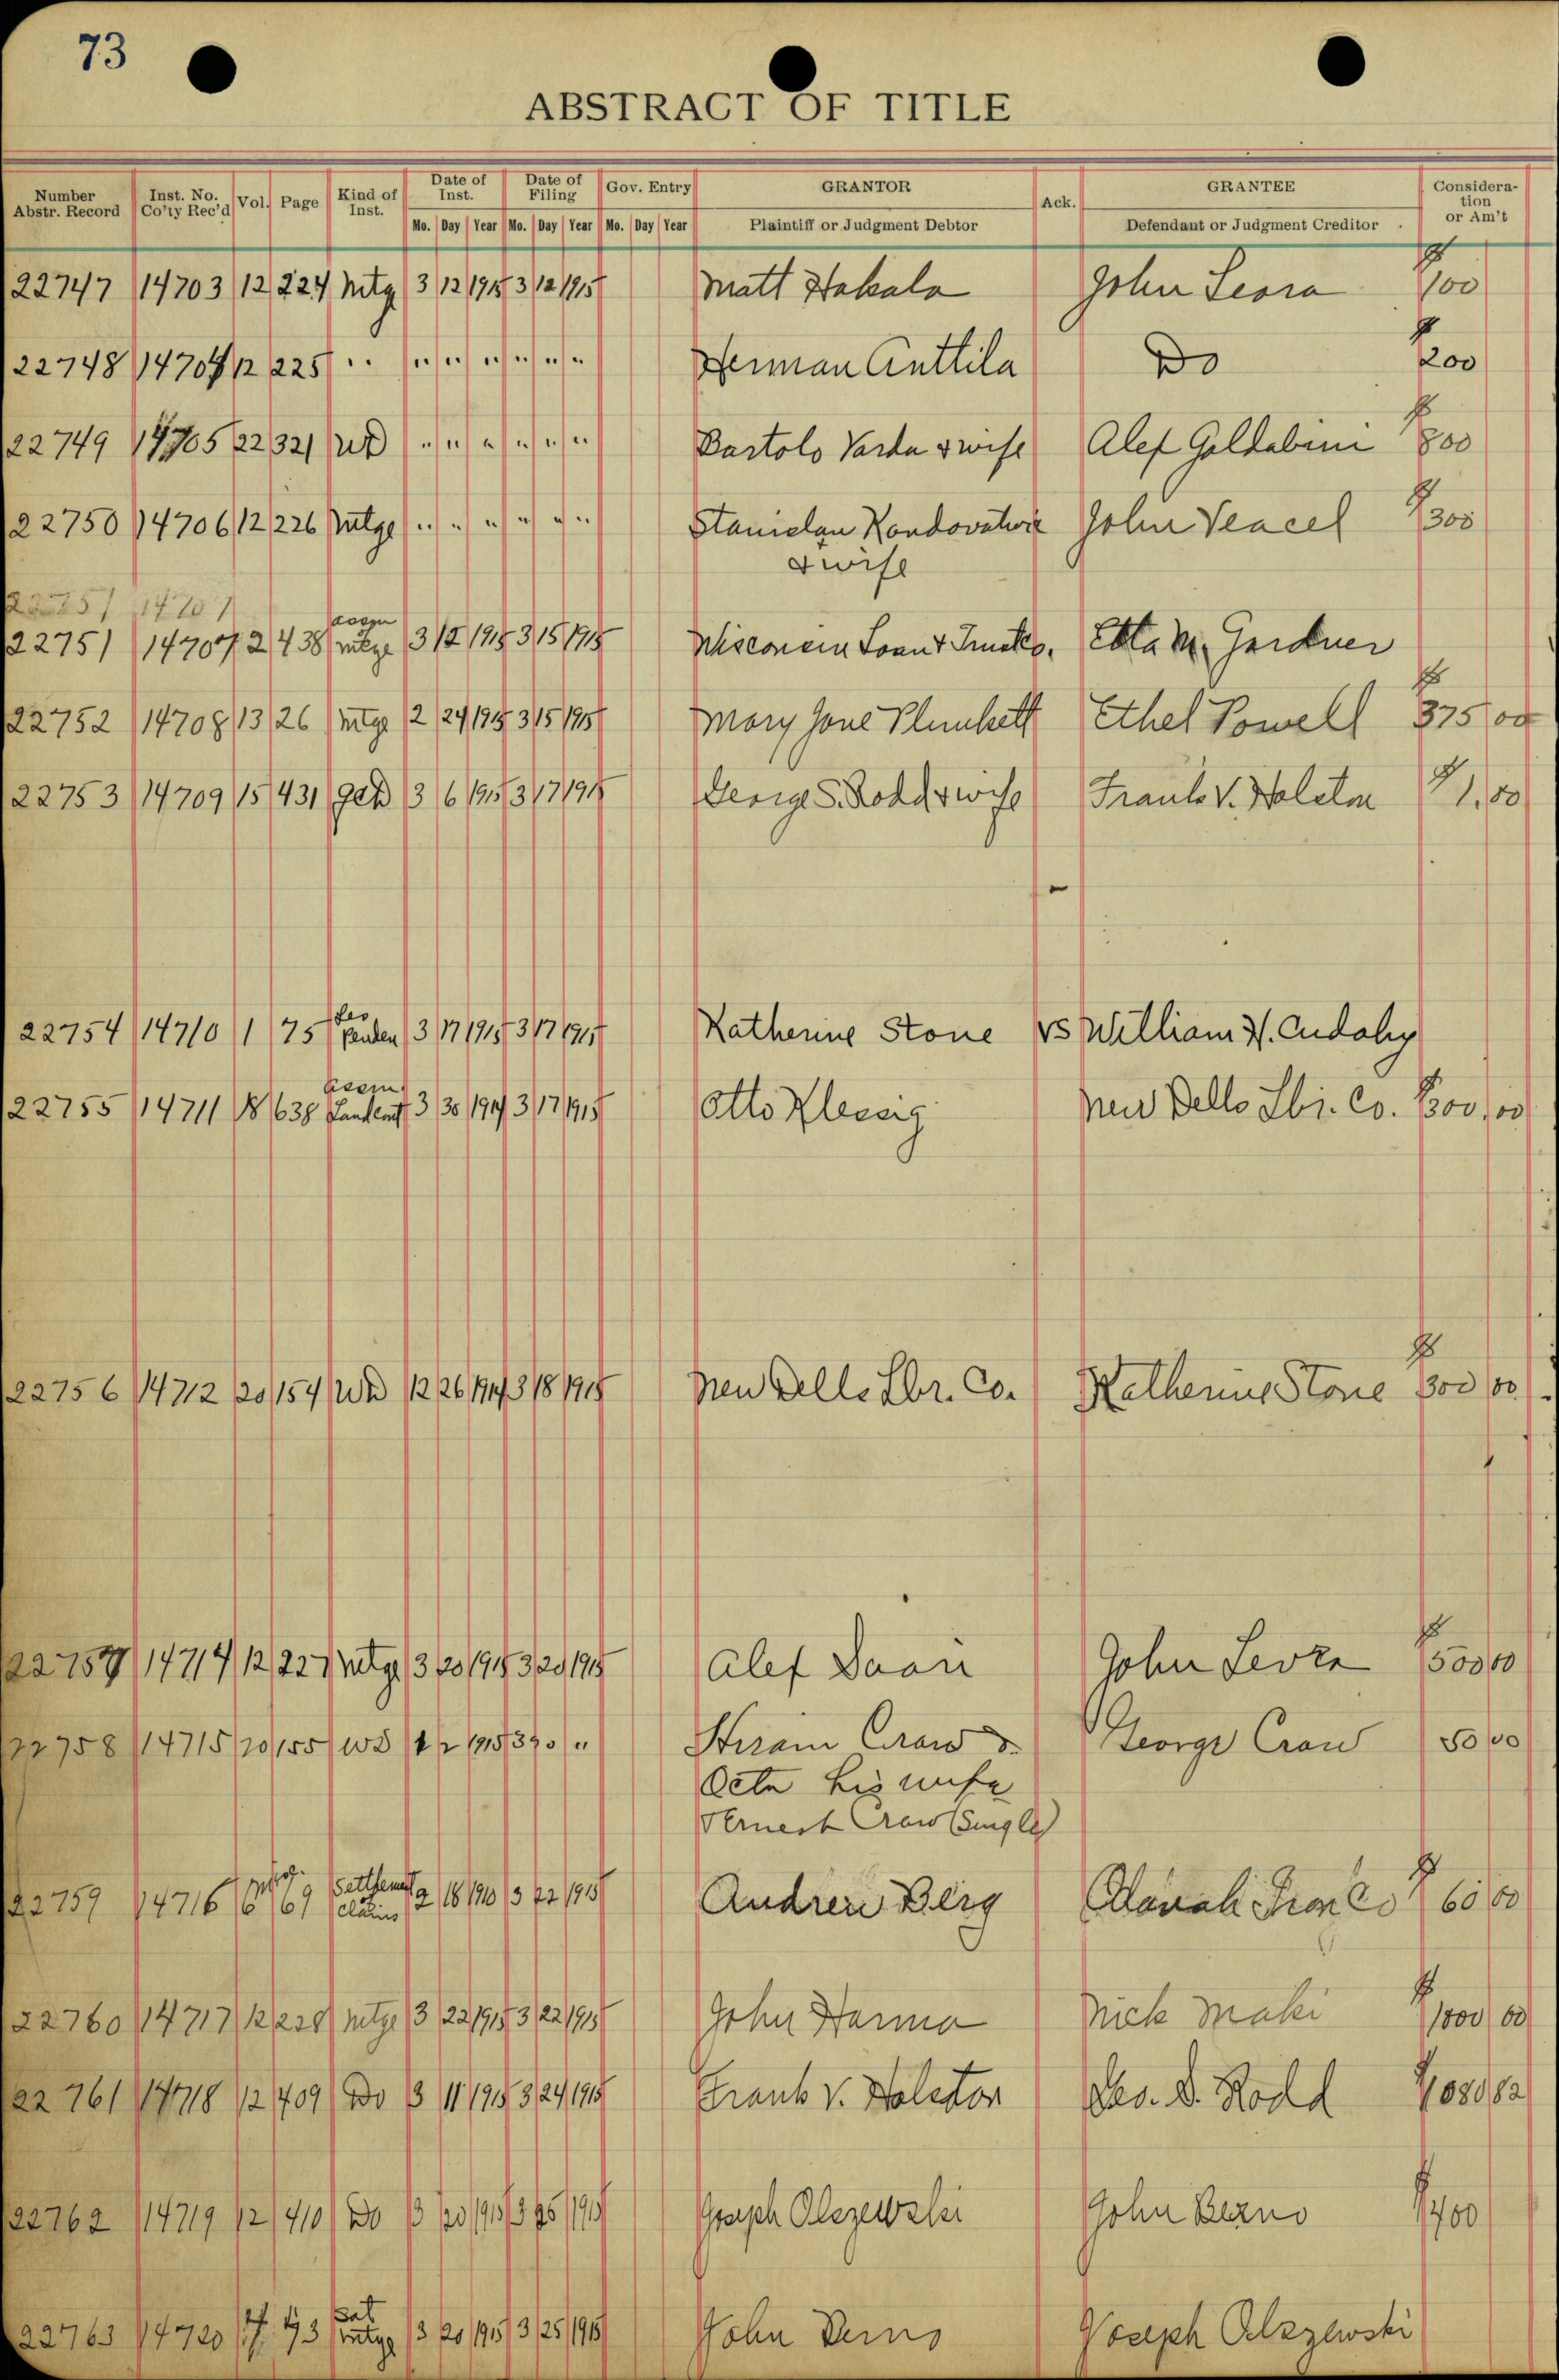 73
ABSTRACT OF TITLE
Number Abstr. Record Inst. No. Co'ty Rec'd Vol. Page Kind of Inst. Date of Inst. Date of Filing Gov. Entry GRANTOR Ack. GRANTEE Consideration or Am't
Mo. Day Year Mo. Day Year Mo. Day Year Plaintiff or Judgment Debtor Defendant or Judgment Creditor
22747 14703 12 224 Mtg 3 12 1915 3 12 1915 Matt Hakala John $100
22748 14704 12 225 " " " " " " " Herman Anttila Do $200
22749 14705 22 321 WD " " " " " " Bartolo Varda & wife Alef $800
22750 14706 12 226 Mtge " " " " " " John Vencel $300
& wife
22751 14707
assgn
22751 14707 2 438 mtge 3 12 1915 3 15 1915 Wisconsin Loan & Trust Co. Etta M. Gardner
22752 14708 13 26 Mtge 2 24 1915 3 15 1915 Mary Jane Plunkett Ethel Powell $375 00
22753 14709 15 431 QCD 3 6 1915 3 17 1915 George S. Rodd & wife Frank V. Holston $1.00
22754 14710 1 75 Les Penden 3 17 1915 3 17 1915 Katherine Stone vs William H. Cudahy
Assm
22755 14711 18 638 Land cont 3 30 1914 3 17 1915 Otto Klessig New Dells Lbr. Co. 300.00
22756 14712 20 154 WD 12 26 1914 3 18 1915 New Dells Lbr. Co. Katherine Stone $300 00
22757 14714 12 227 Mtge 3 20 1915 3 20 1915 Alef John $500 00
22758 14715 20 155 WD 1915 3 20 " Hiram Craw & George Craw 50 00
his wife
& Ernest Craw (Single)
22759 14716 6 69 Settlement claims 2 18 1910 3 22 1915 Andrew Berg Odanah Iron Co $60 00
22760 14717 12 228 Mtge 3 22 1915 3 22 1915 John Harma Nick Maki $1000 00
22761 14718 12 409 Do 3 11 1915 3 24 1915 Frank V. Holston Geo. S. Rodd
22762 14719 12 410 Do 3 20 1915 3 25 1915 Joseph Olszewski John Berno $1400
22763 14720 17 193 Sat mtge 3 20 1915 3 25 1915 John Berno Joseph Olszewski